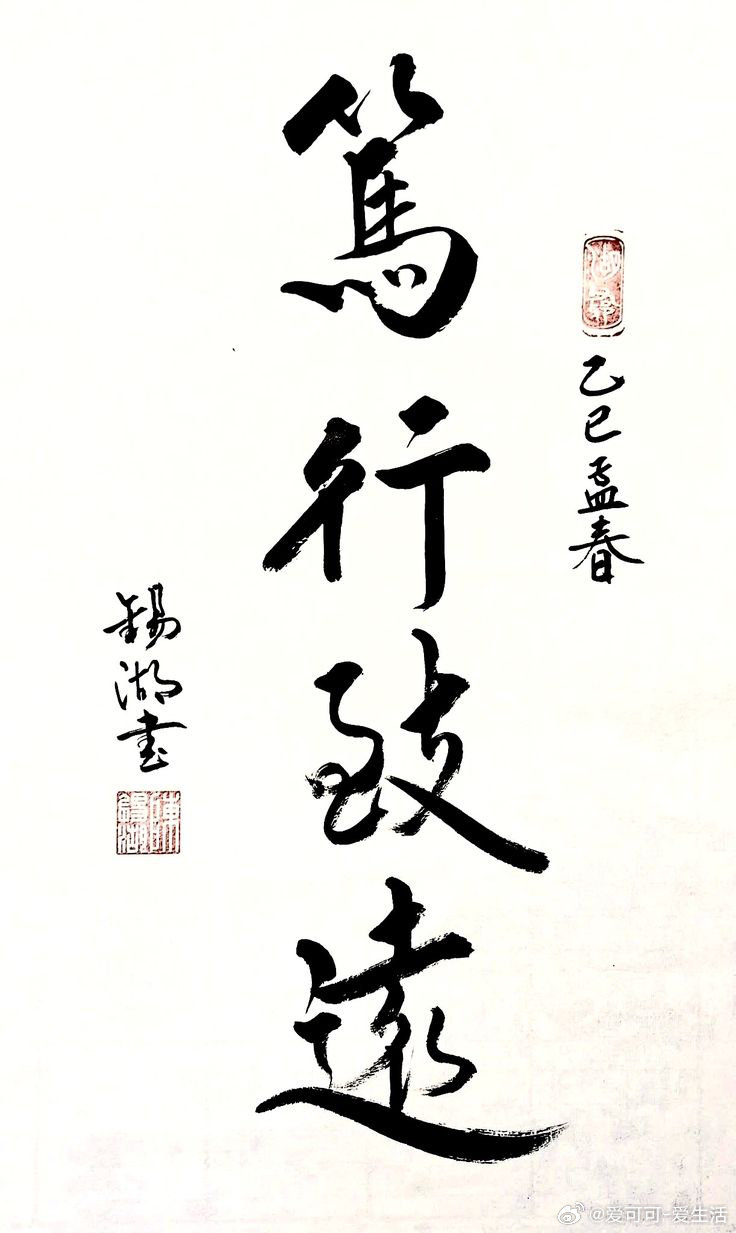 乙巳孟春
篤行致遠
錫湖書
陳錫湖
@爱可可-爱生活